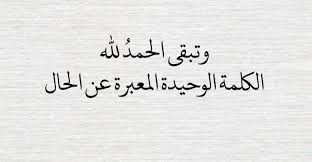 وتبقى الحمدُ لله
الكلمة الوحيدة المعبرة عن الحال